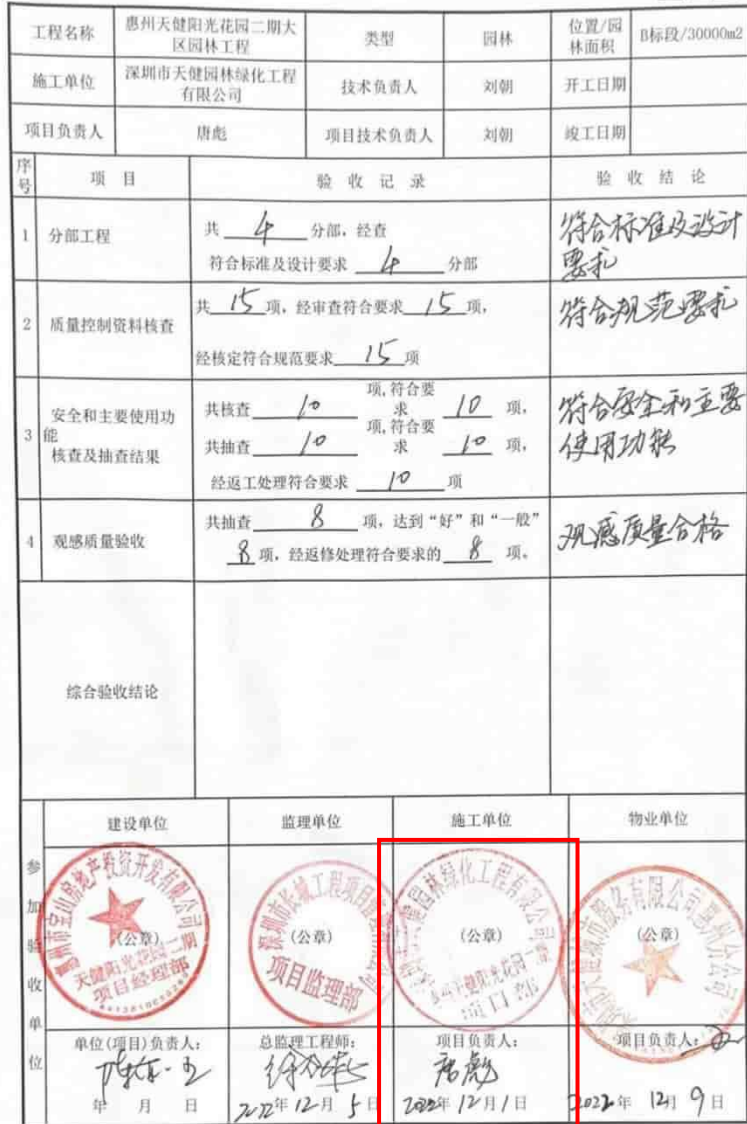 工程名称 惠州天健阳光花园二期大区园林工程 类型 园林 位置/园林面积 B标段/30000m2
施工单位 深圳市天健园林绿化工程有限公司 技术负责人 刘朝 开工日期
项目负责人 唐彪 项目技术负责人 刘朝 竣工日期
序号 项 目 验 收 记 录 验 收 结 论
1 分部工程 共 4 分部，经查
符合标准及设计要求 4 分部
符合标准及设计
要求
2 质量控制资料核查 共 15 项，经审查符合要求 15 项，
经核定符合规范要求 15 项
符合规范要求
3 安全和主要使用功能
核查及抽查结果
共核查 10 项,符合要求 10 项，
共抽查 10 项,符合要求 10 项，
经返工处理符合要求 10 项
符合安全和主要
使用功能
4 观感质量验收 共抽查 8 项，达到“好”和“一般”
8 项，经返修处理符合要求的 8 项。
观感质量合格
综合验收结论
参加验收单位
建设单位 监理单位 施工单位 物业单位
惠州市宝山房地产投资开发有限公司
天健阳光花园二期
项目经理部
(公章)
项目监理部
(公章)
园林绿化工程有限公司
天健阳光花园二期
(公章)
服务有限公司惠州分公司
(公章)
单位(项目)负责人： 总监理工程师： 项目负责人： 项目负责人：
唐彪
年 月 日 2022年 12月 5日 2022年 12月 1日 2022年 12月 9日